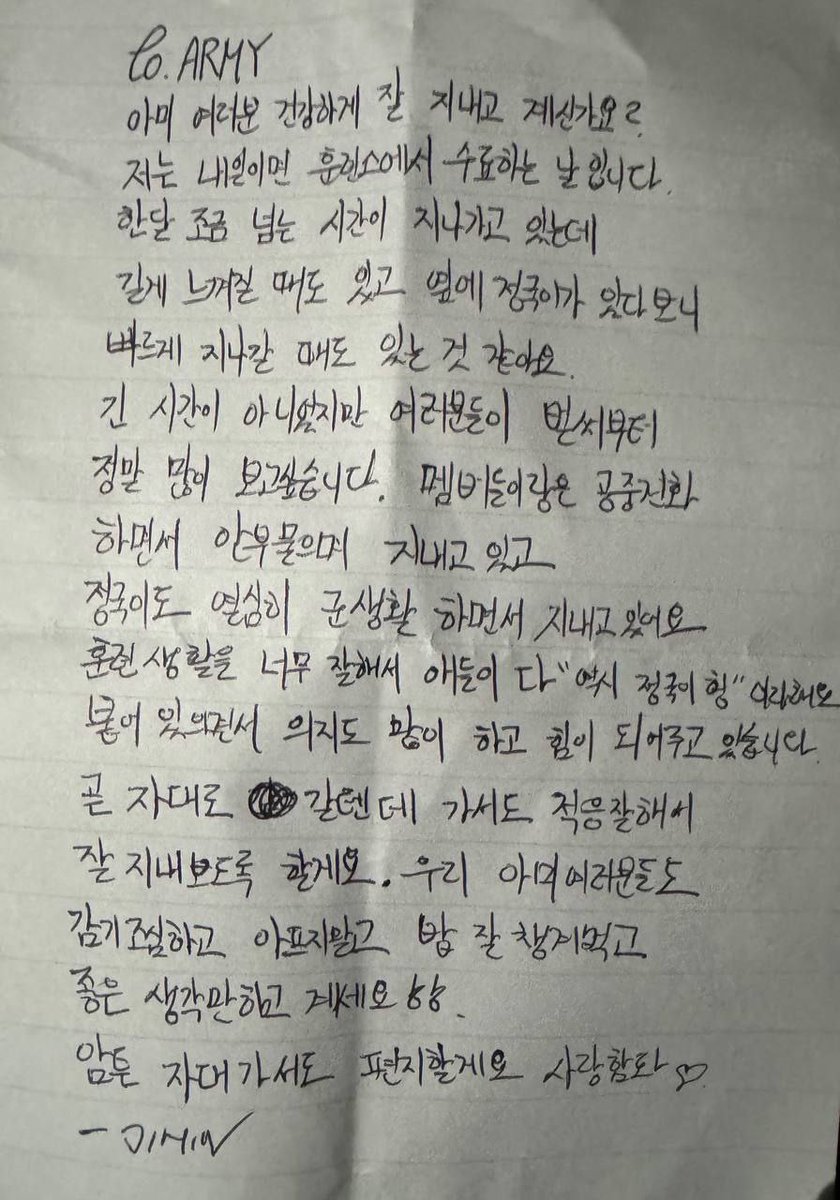 To. ARMY
아미 여러분 건강하게 잘 지내고 계신가요?
저는 내일이면 훈련소에서 수료하는 날입니다.
한달 조금 넘는 시간이 지나가고 있는데
길게 느껴질 때도 있고 옆에 정국이가 있다보니
빠르게 지나갈 때도 있는 것 같아요.
긴 시간이 아니었지만 여러분들이 벌써부터
정말 많이 보고싶습니다. 멤버들이랑은 공중전화
하면서 안부물으며 지내고 있고
정국이도 열심히 군생활 하면서 지내고 있어요
훈련생활을 너무 잘해서 애들이 다 "역시 정국이 형" 이라해요
붙어 있으면서 의지도 많이 하고 힘이 되어주고 있습니다.
곧 자대로 갈텐데 가서도 적응잘해서
잘 지내보도록 할게요. 우리 아미여러분들도
감기조심하고 아프지말고 밥 잘 챙겨먹고
좋은 생각만하고 계세요
암튼 자대가서도 편지할게요 사랑함돠 ♡.
- JIMIN